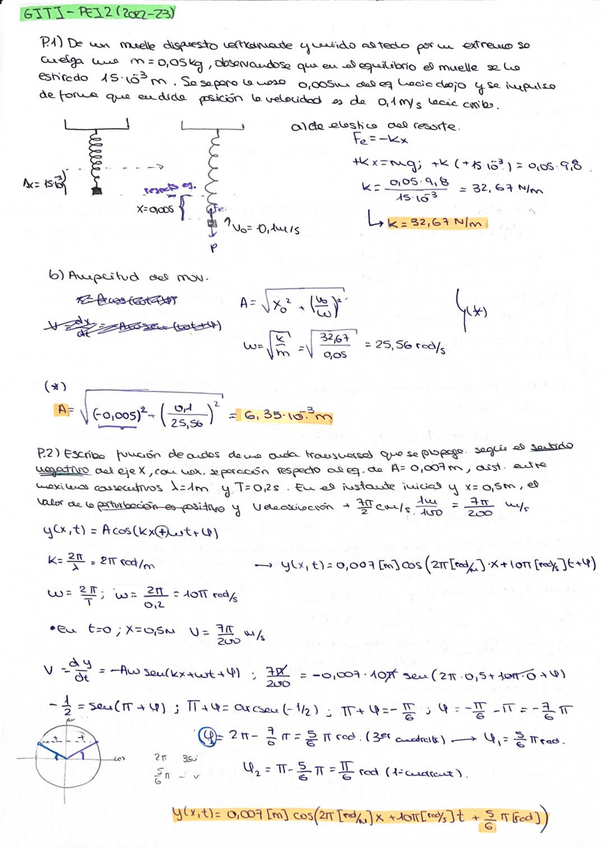 GITI - PEI2 (2022-23)
P.1) De un muelle dispuesto verticalmente y unido al techo por un extremo se
cuelga una m = 0,05 kg, observándose que en el equilibrio el muelle se ha
estirado 15·10⁻³ m. Se separa la masa 0,005 m del eq hacia abajo y se impulsa
de forma que en dicha posición la velocidad es de 0,1 m/s hacia arriba.
a) cte elástica del resorte.
Fe = -Kx
+Kx = mg; +K (+15·10⁻³) = 0,05·9,8
K = 0,05·9,8 / 15·10⁻³ = 32,67 N/m
K = 32,67 N/m
Δx = 15·10⁻³
respecto eq.
x = 0,005
Fe
V₀ = 0,1 m/s
P
b) Amplitud del mov.
A = √(x₀² + (v₀/ω)²)
(*)
ω = √(k/m) = √(32,67/0,05) = 25,56 rad/s
(*)
A = √((-0,005)² - (0,1/25,56)²) = 6,35·10⁻³ m
P.2) Escribe función de ondas de una onda transversal que se propaga según el sentido
negativo del eje X, con máx. separación respecto al eq. de A = 0,007 m, dist. entre
máximos consecutivos λ = 1m y T = 0,2s. En el instante inicial y x = 0,5m, el
valor de la perturbación es positivo y + 7π/2 cm/s 1m/100 = 7π/200 m/s
y(x,t) = A cos(kx + ωt + φ)
K = 2π/λ = 2π rad/m → y(x,t) = 0,007 [m] cos (2π [rad/m]·x + 10π [rad/s] t + φ)
ω = 2π/T; ω = 2π/0,2 = 10π rad/s
• En t=0; x=0,5m V = 7π/200 m/s
V = dy/dt = -Aω sen(kx + ωt + φ); 7π/200 = -0,007·10π sen (2π·0,5 + 10π·0 + φ)
-1/2 = sen(π + φ); π + φ = arcsen(-1/2); π + φ = -π/6; φ = -π/6 - π = -7/6 π
φ₁ = 2π - 7/6 π = 5/6 π rad. (3er cuadrante) → φ₁ = 5/6 π rad.
cos
φ₂ = π - 5/6 π = π/6 rad (1er cuadrant).
y(x,t) = 0,007 [m] cos(2π [rad/m] x + 10π [rad/s] t + 5/6 π [rad])